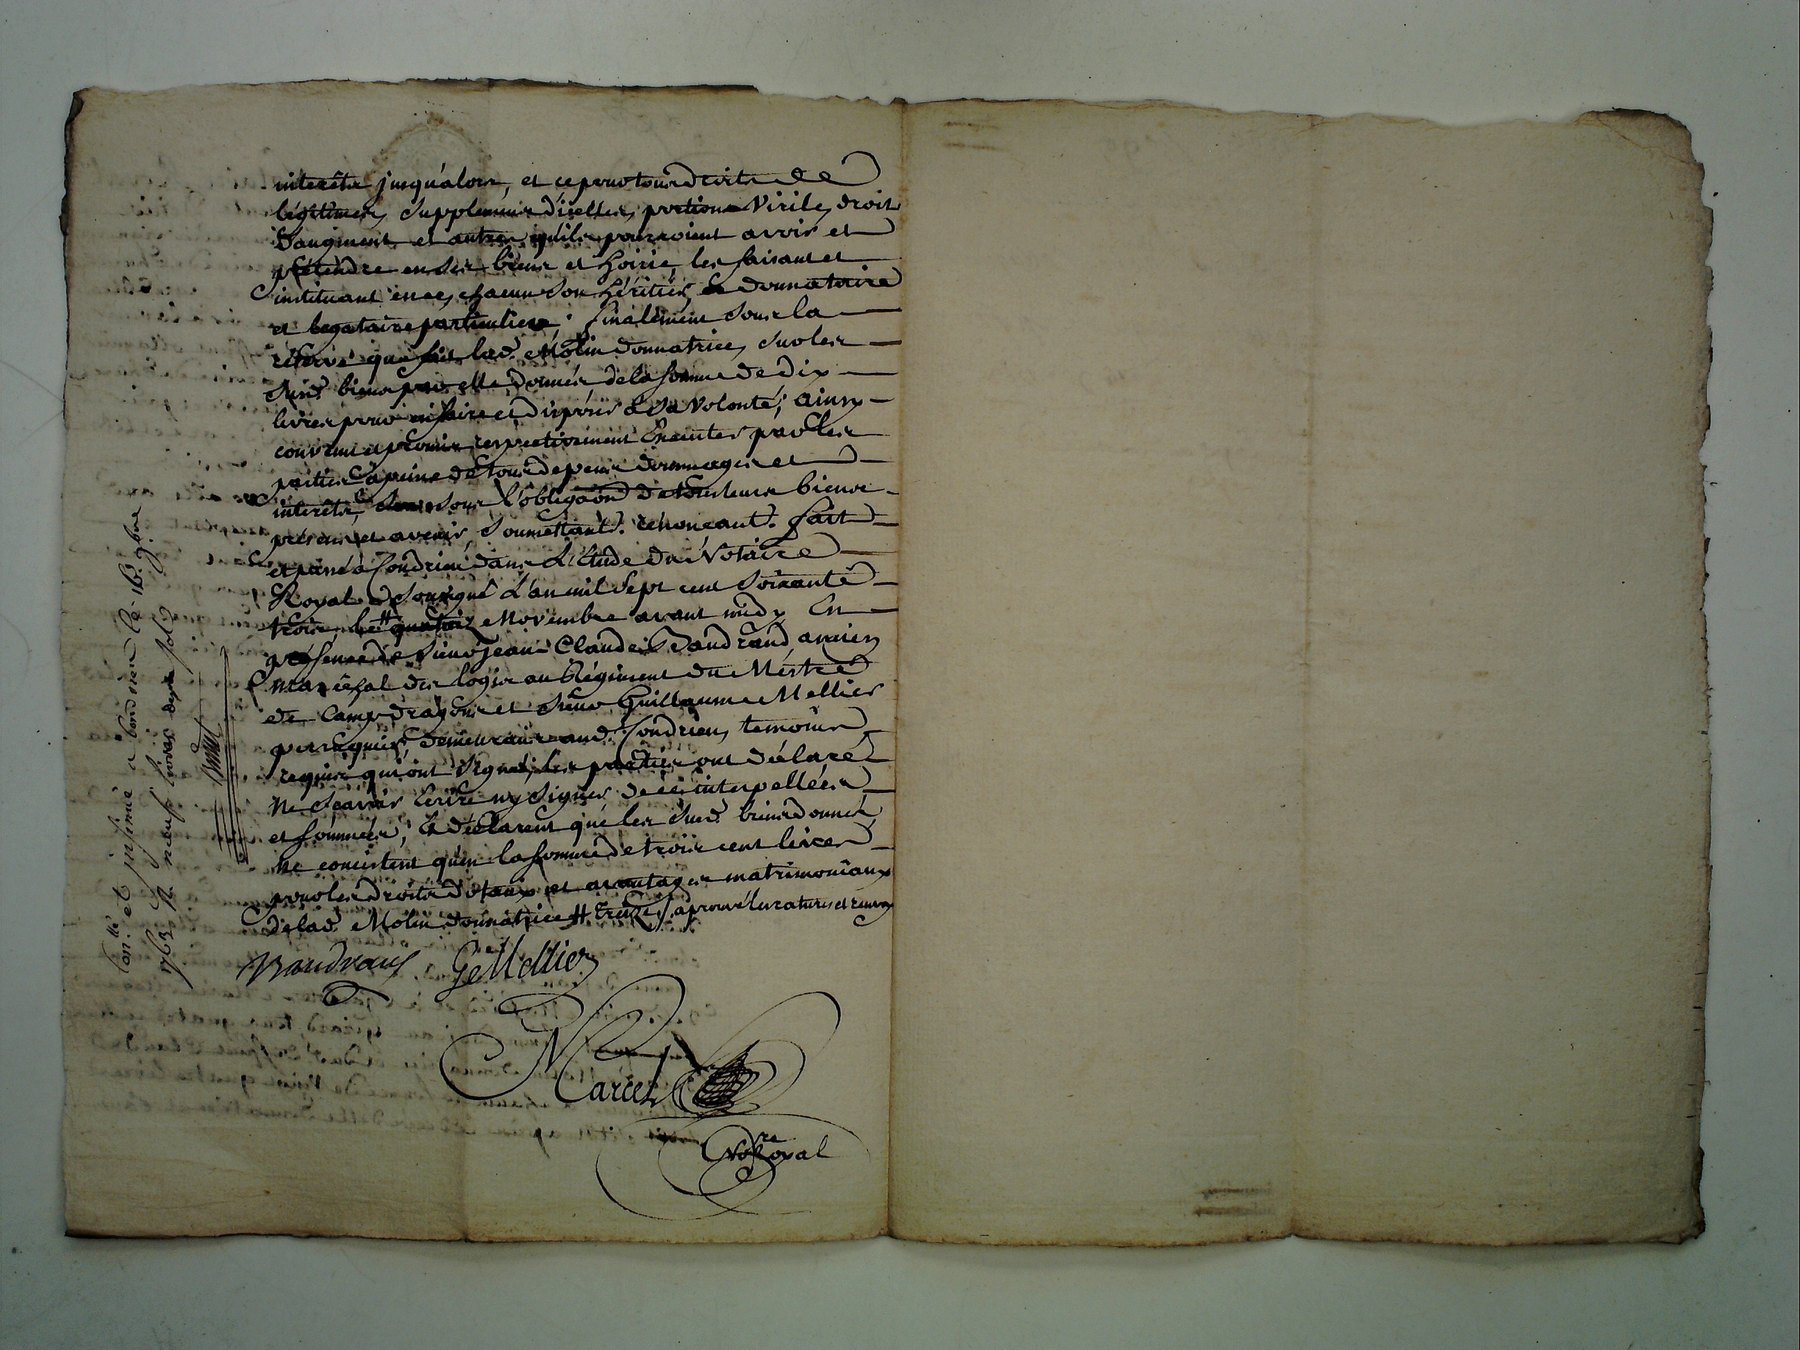 interêts jusqu'alors, et ce pour tous droits de
légitimes, supplement d'icelles, portion Virile, droit
d'augment et autres qu'ils pourroient avoir et
prétendre en ses biens et hoirie, les faisant et
instituant en ce, chacun son héritier, donnatoire
et legataire particuliere; finalement sous la
réserve que fait lad. Molin donnatrice, sur les
susd. biens par elle donnés, de la somme de dix
livres pour en faire et disposer à sa volonté; ainsy
convenu et promis respectivement Executer par les
parties à peine de tous depens dommages et
interêts, sous l'obligaôn de tous leurs biens
présens et avenir, soumettant. renonceant. fait
et passé à Condrieu dans L'Etude du Notaire
Royal soussigné L'an mil sept cent soixante
trois, le # quatorz Novembre avant midy En
présence de sieur Jean Claude Baudrand, ancien
Marêchal des logis au Régiment du Mestre
de Camp dragons et sieur Guillaume Mellier
perruquier, demeurants aud. Condrieu, temoins
requis qui ont signé, les parties ont déclaré
ne scavoir Ecrire ny signer de ce interpellées
et sommées, Et déclarent que les susd. biens donnés
ne consistent qu'en la somme de trois cent livres
pour les droits dotaux et avantages matrimoniaux
de lad. Molin donnatrice # Treize, aprouvé les ratures et renvoy
Baudrand G. Mellier
Marcel
No.re Royal
Con.llé et insinué a Condrieu le 16.e 9.bre
1763 R. neuf livres dix sols